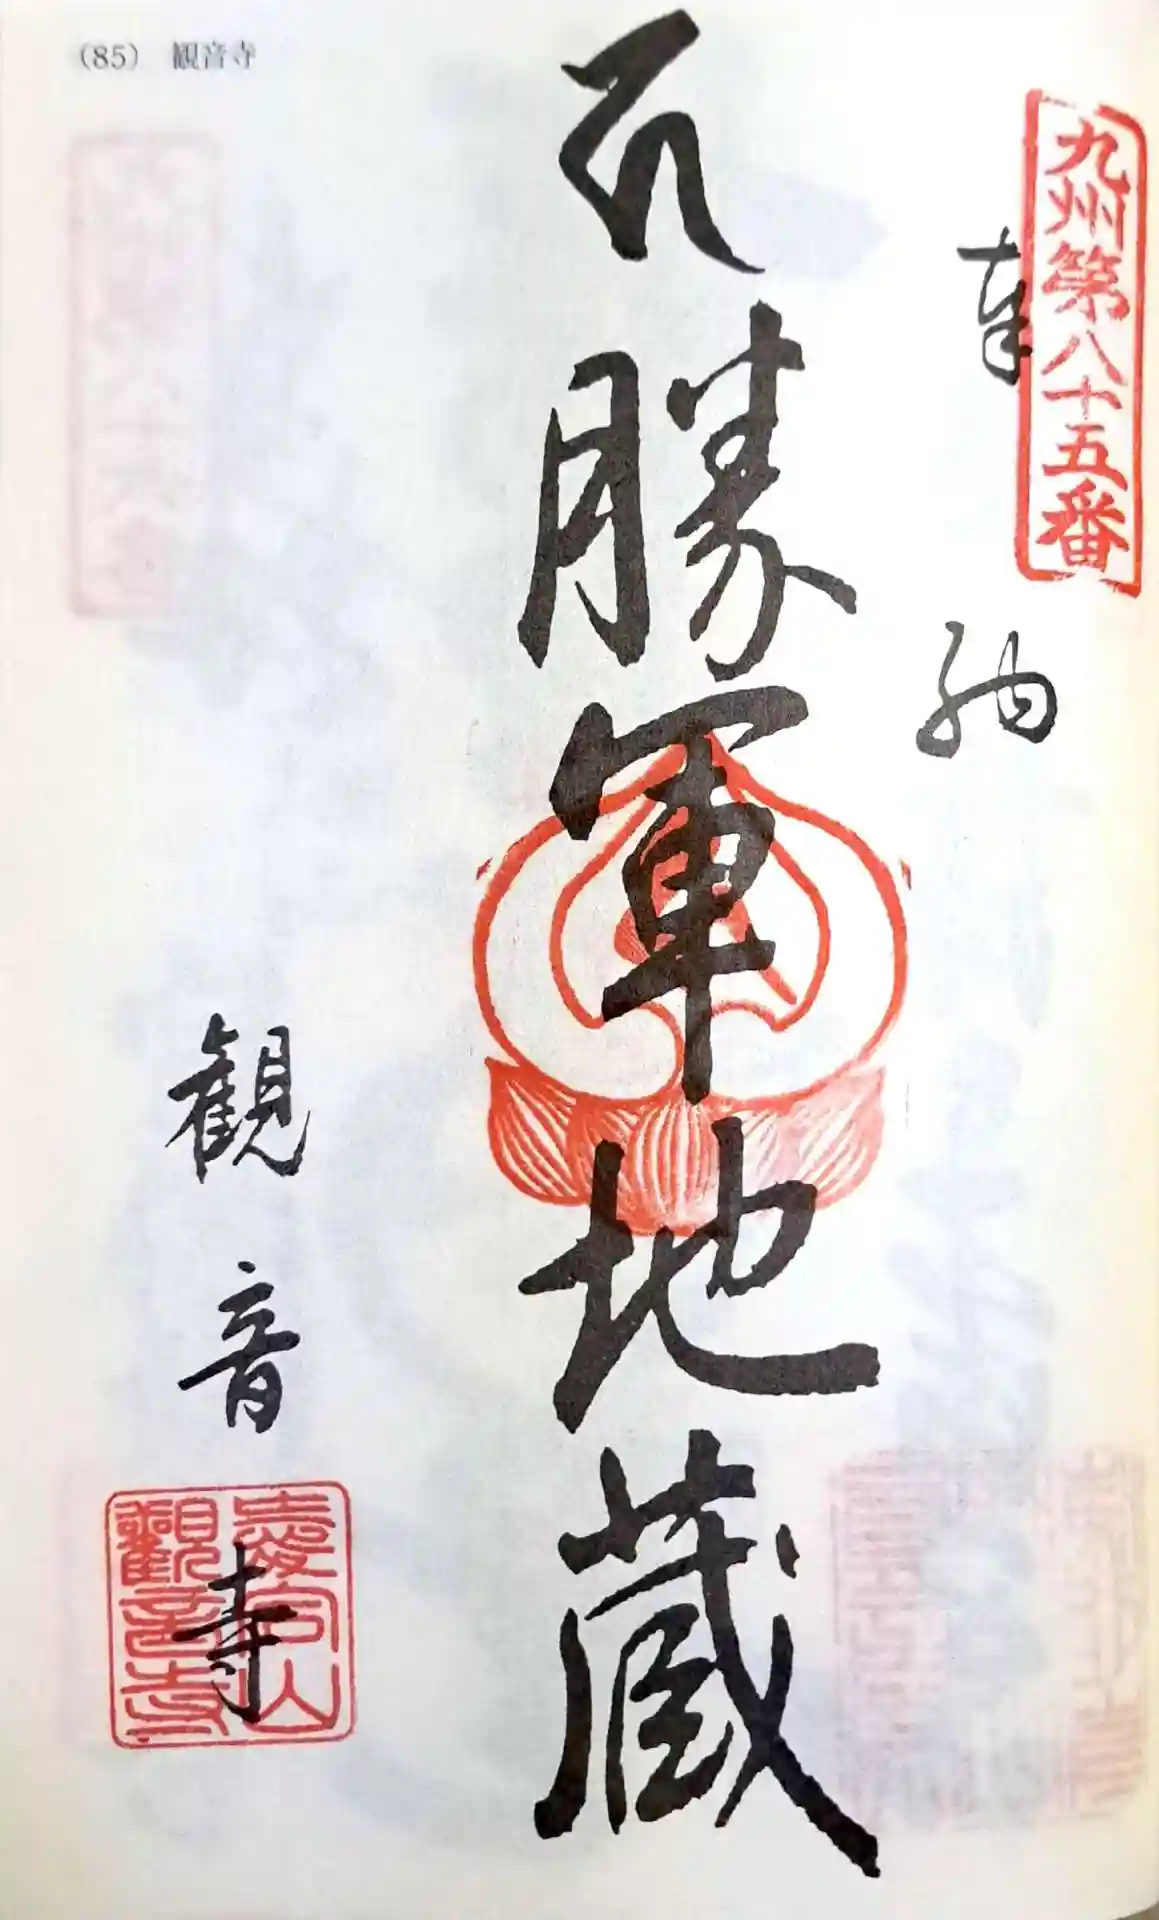 (85) 観音寺
九州第八十五番
奉納
勝軍地蔵
観音寺
愛宕山
觀音寺